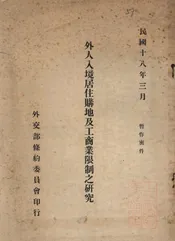 民國十八年三月
暫作密件
外人入境居住購地及工商業限制之研究
外交部條約委員會印行